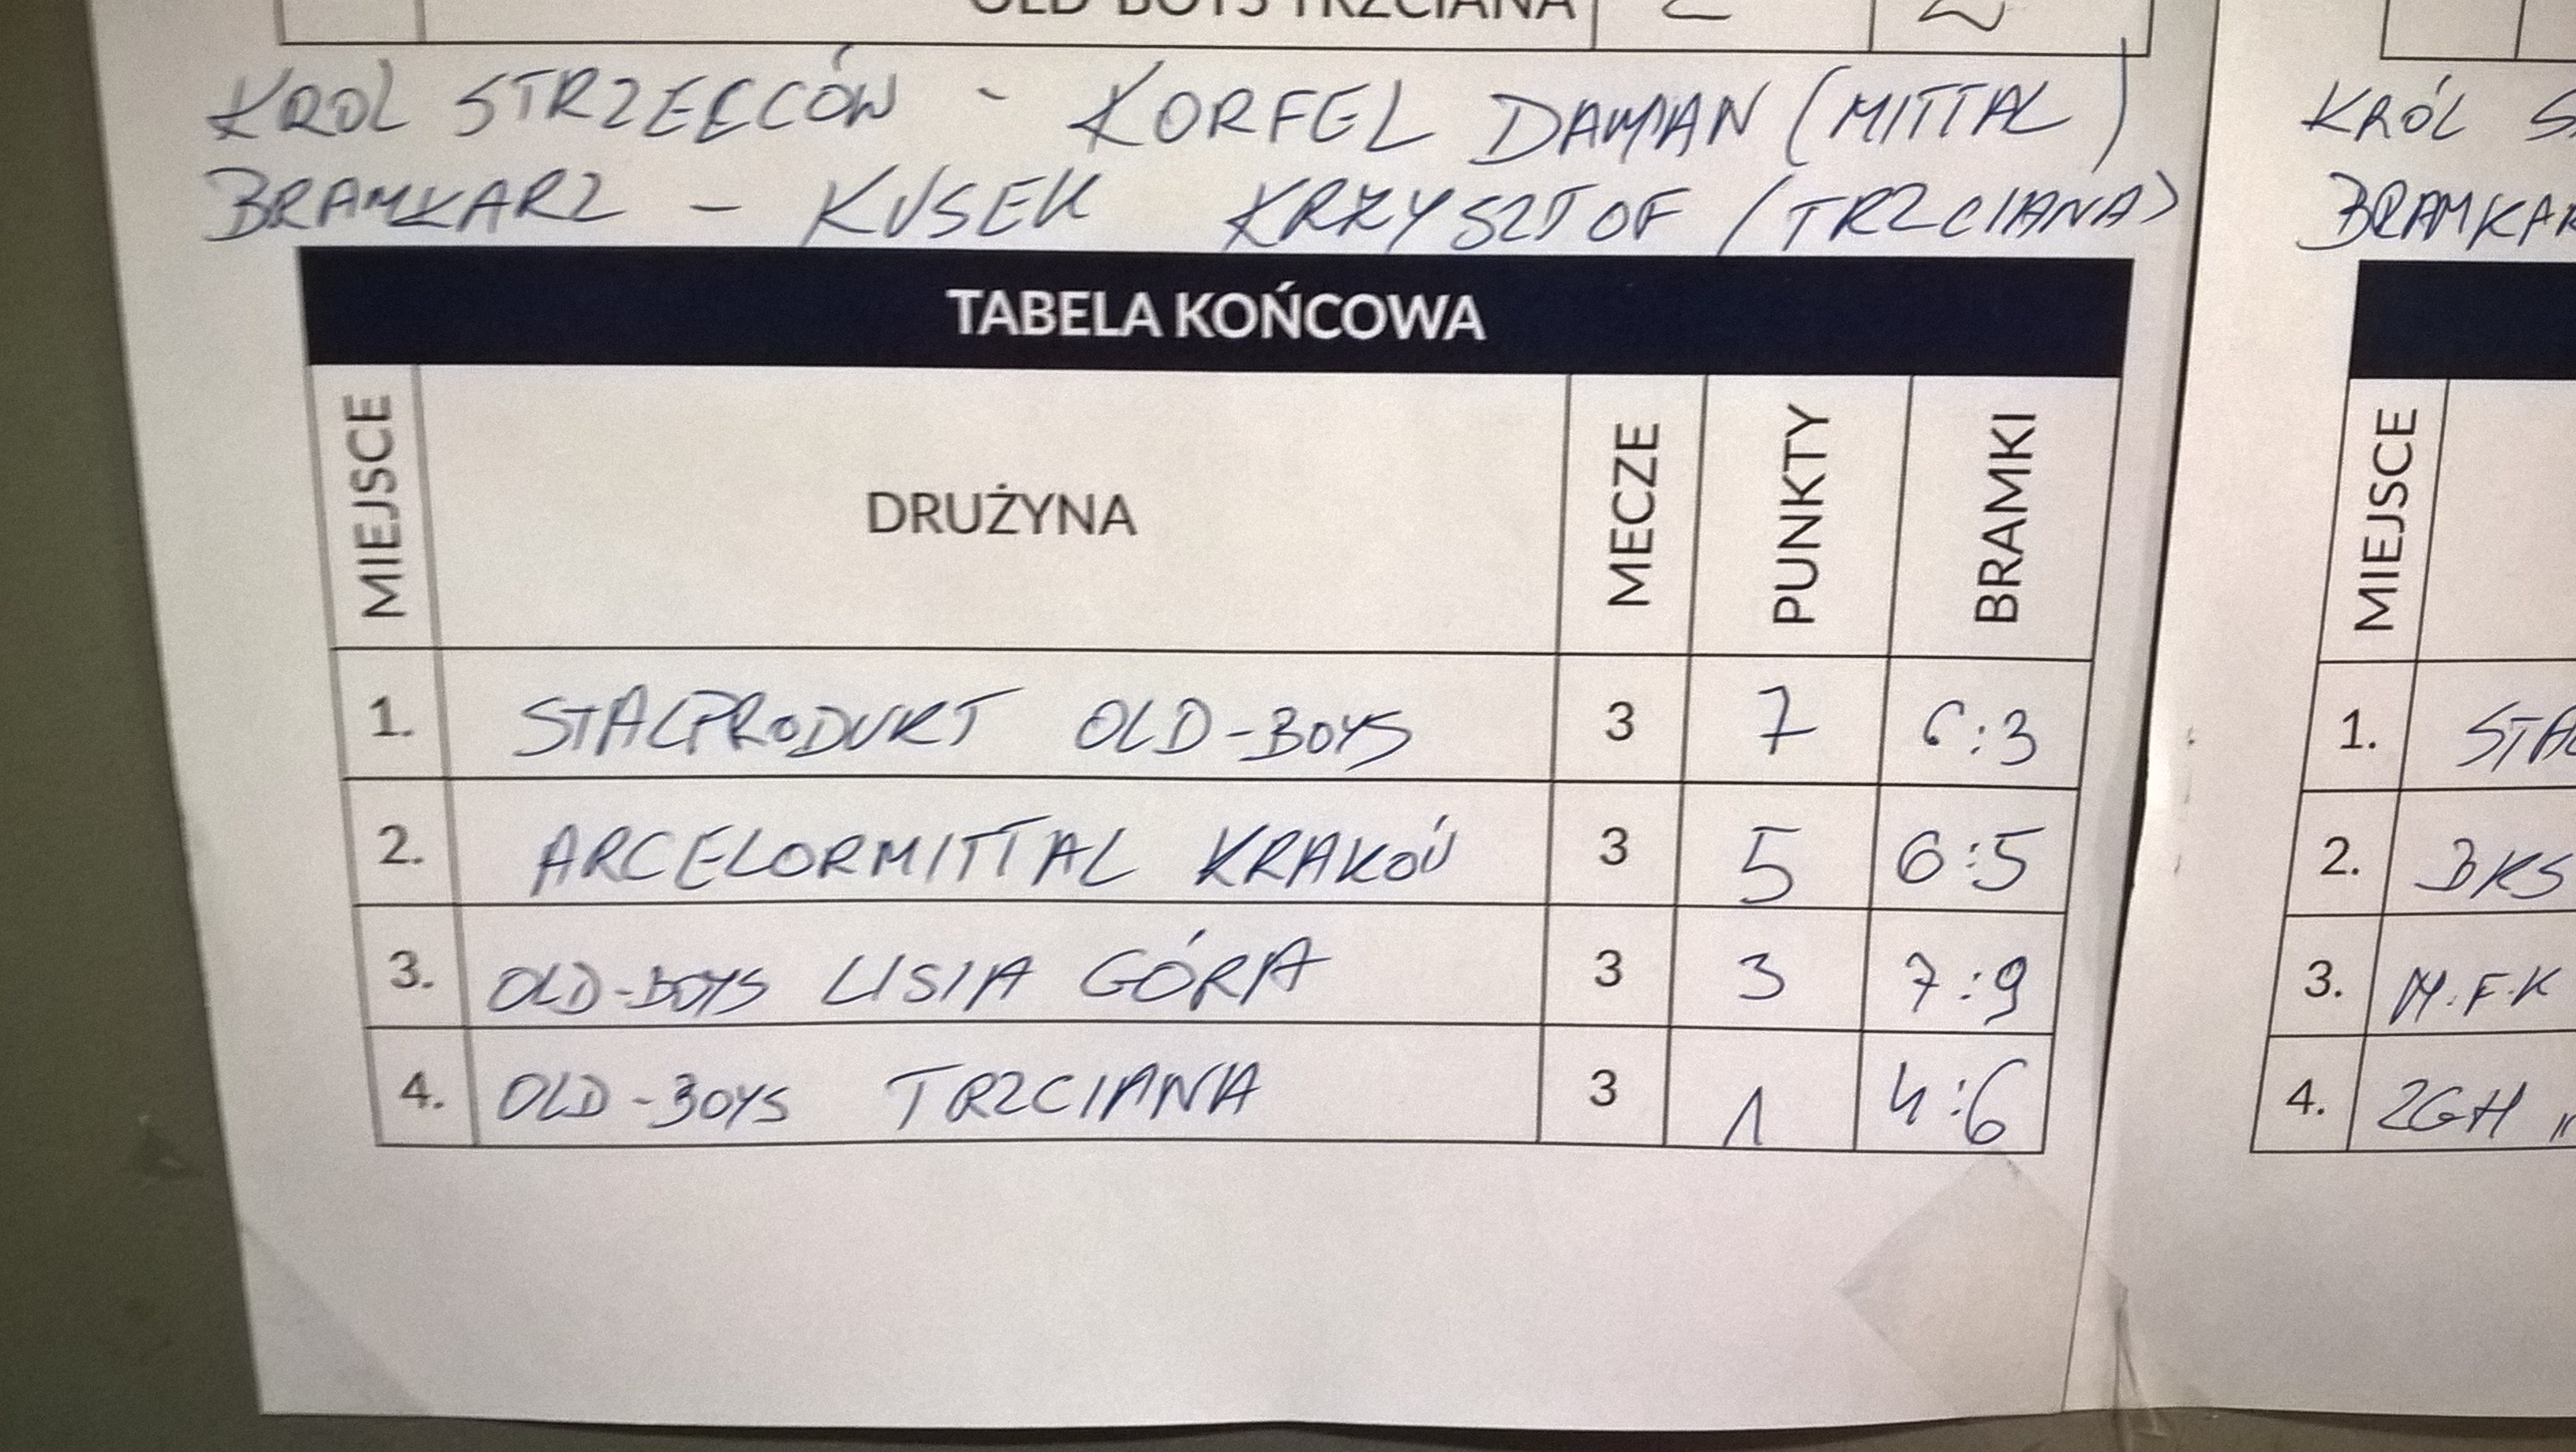 OLD-BOYS TRZCIANA 2 2
KRÓL STRZELCÓW - KORFEL DAMIAN (MITTAL)
BRAMKARZ - KUSEK KRZYSZTOF (TRZCIANA)
TABELA KOŃCOWA
MIEJSCE DRUŻYNA MECZE PUNKTY BRAMKI
1. STALPRODUKT OLD-BOYS 3 7 6:3
2. ARCELORMITTAL KRAKÓW 3 5 6:5
3. OLD-BOYS LISIA GÓRA 3 3 7:9
4. OLD-BOYS TRZCIANA 3 1 4:6
KRÓL S
BRAMKAR
MIEJSCE
1. STAL
2. BKS
3. M.F.K
4. ZGH "